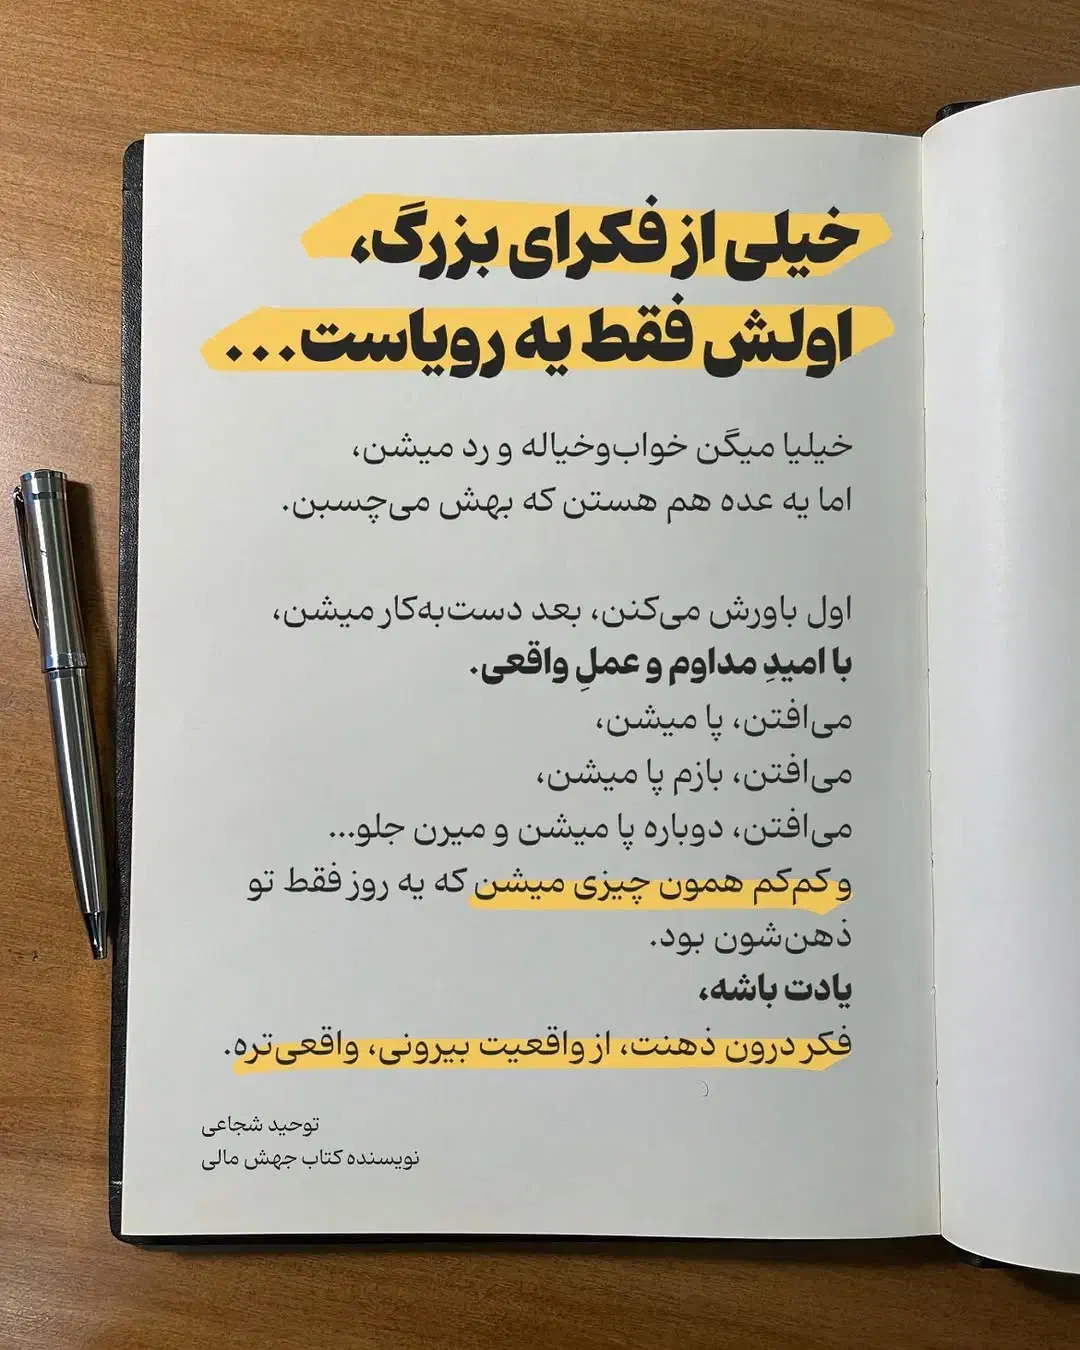 خیلی از فکرای بزرگ،
اولش فقط یه رویاست...
خیلیا میگن خواب‌وخیاله و رد میشن،
اما یه عده هم هستن که بهش می‌چسبن.
اول باورش می‌کنن، بعد دست‌به‌کار میشن،
با امیدِ مداوم و عملِ واقعی.
می‌افتن، پا میشن،
می‌افتن، بازم پا میشن،
می‌افتن، دوباره پا میشن و میرن جلو...
و کم‌کم همون چیزی میشن که یه روز فقط تو
ذهن‌شون بود.
یادت باشه،
فکر درون ذهنت، از واقعیت بیرونی، واقعی‌تره.
توحید شجاعی
نویسنده کتاب جهش مالی